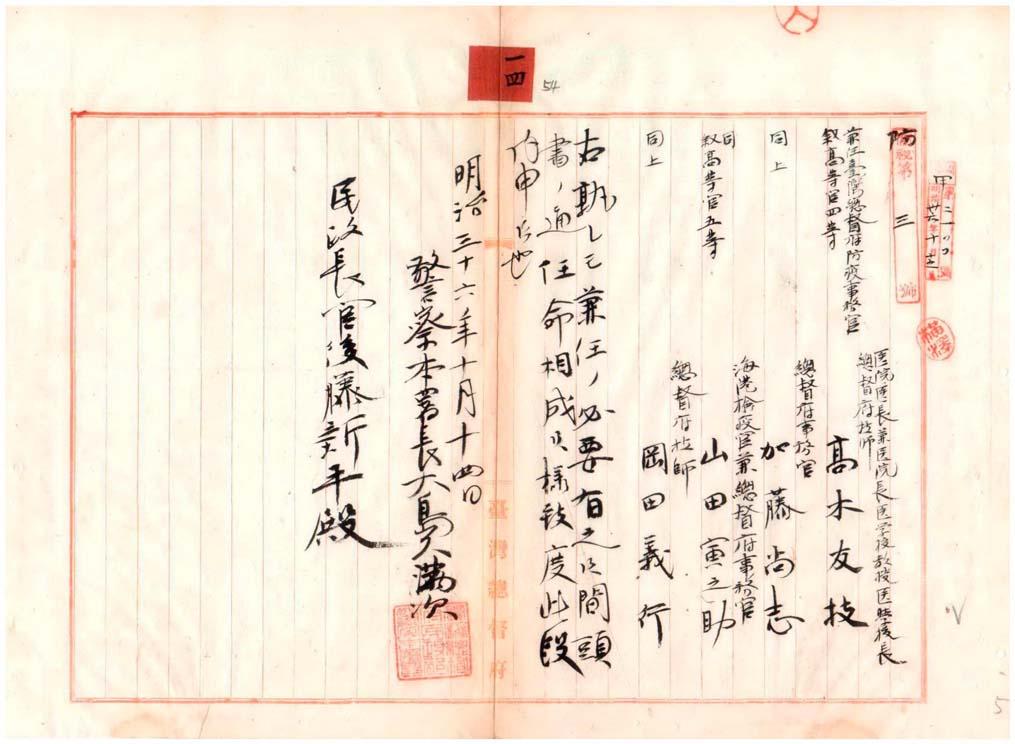 一四
54
防秘第三號
兼任臺灣總督府防疫事務官
叙高等官四等
医院医長兼医院長医学校教授医学校長
總督府技師
高木友技
同上
總督府事務官
加藤尚志
同
叙高等官五等
海港検疫官兼總督府事務官
山田寅之助
同上
總督府技師
岡田義行
右執レモ兼任ノ必要有之候間頭
書ノ通任命相成候様致度此段
内申候也
明治三十六年十月十四日
警察本署長大島久満次
民政長官後藤新平殿
臺灣總督府
5